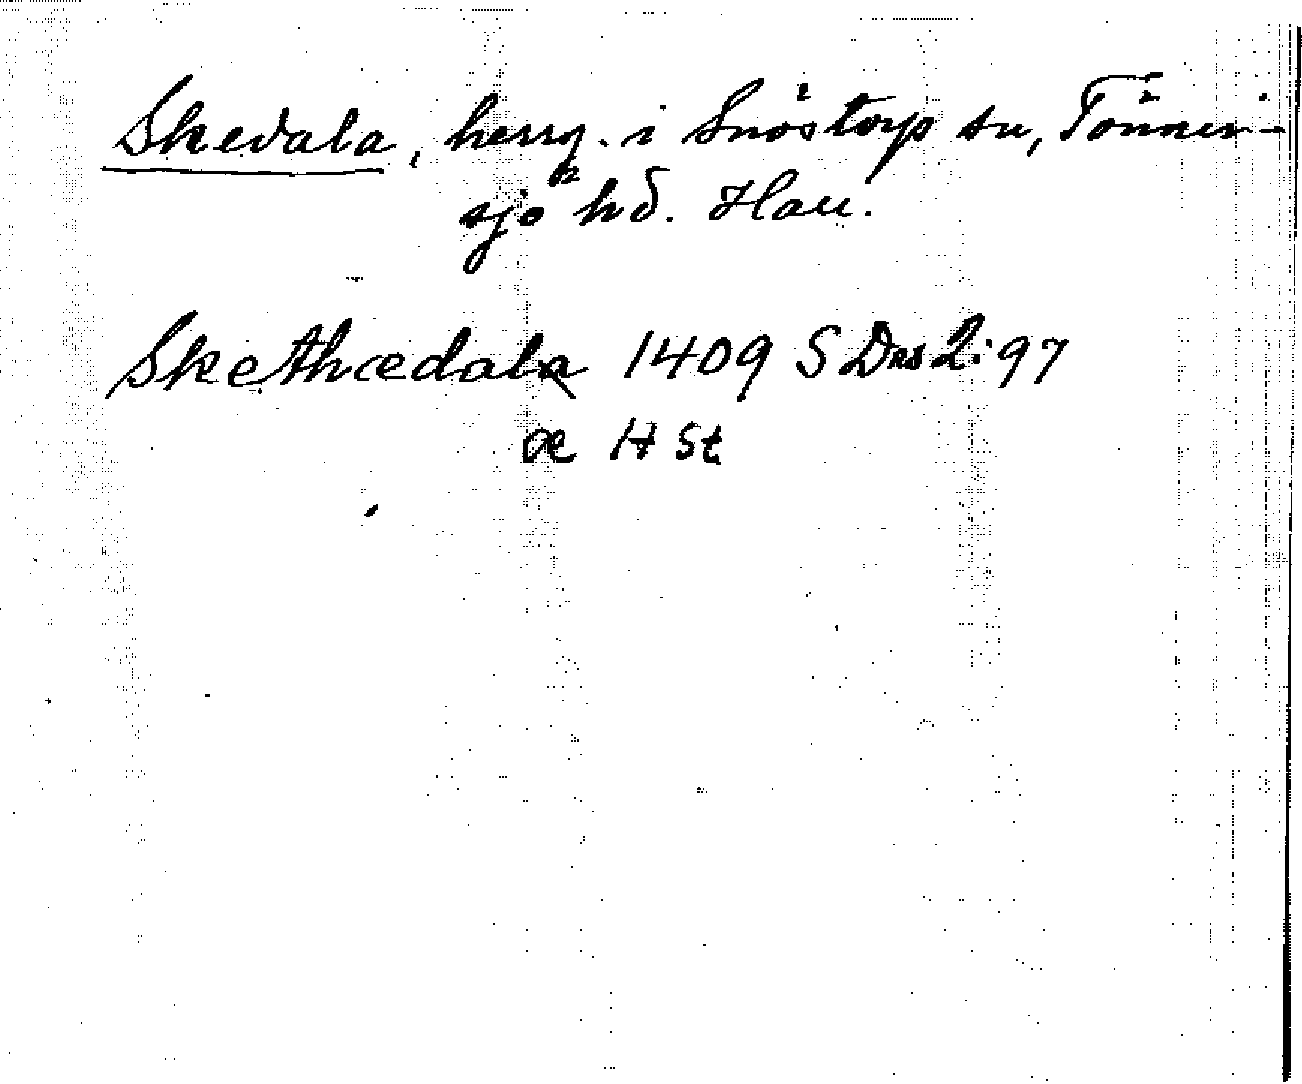 Skedala, herrg. i Snöstorp sn, Tönner-
sjö hd. Hall.
Skethædala 1409 SDns 2:97
æ HSt